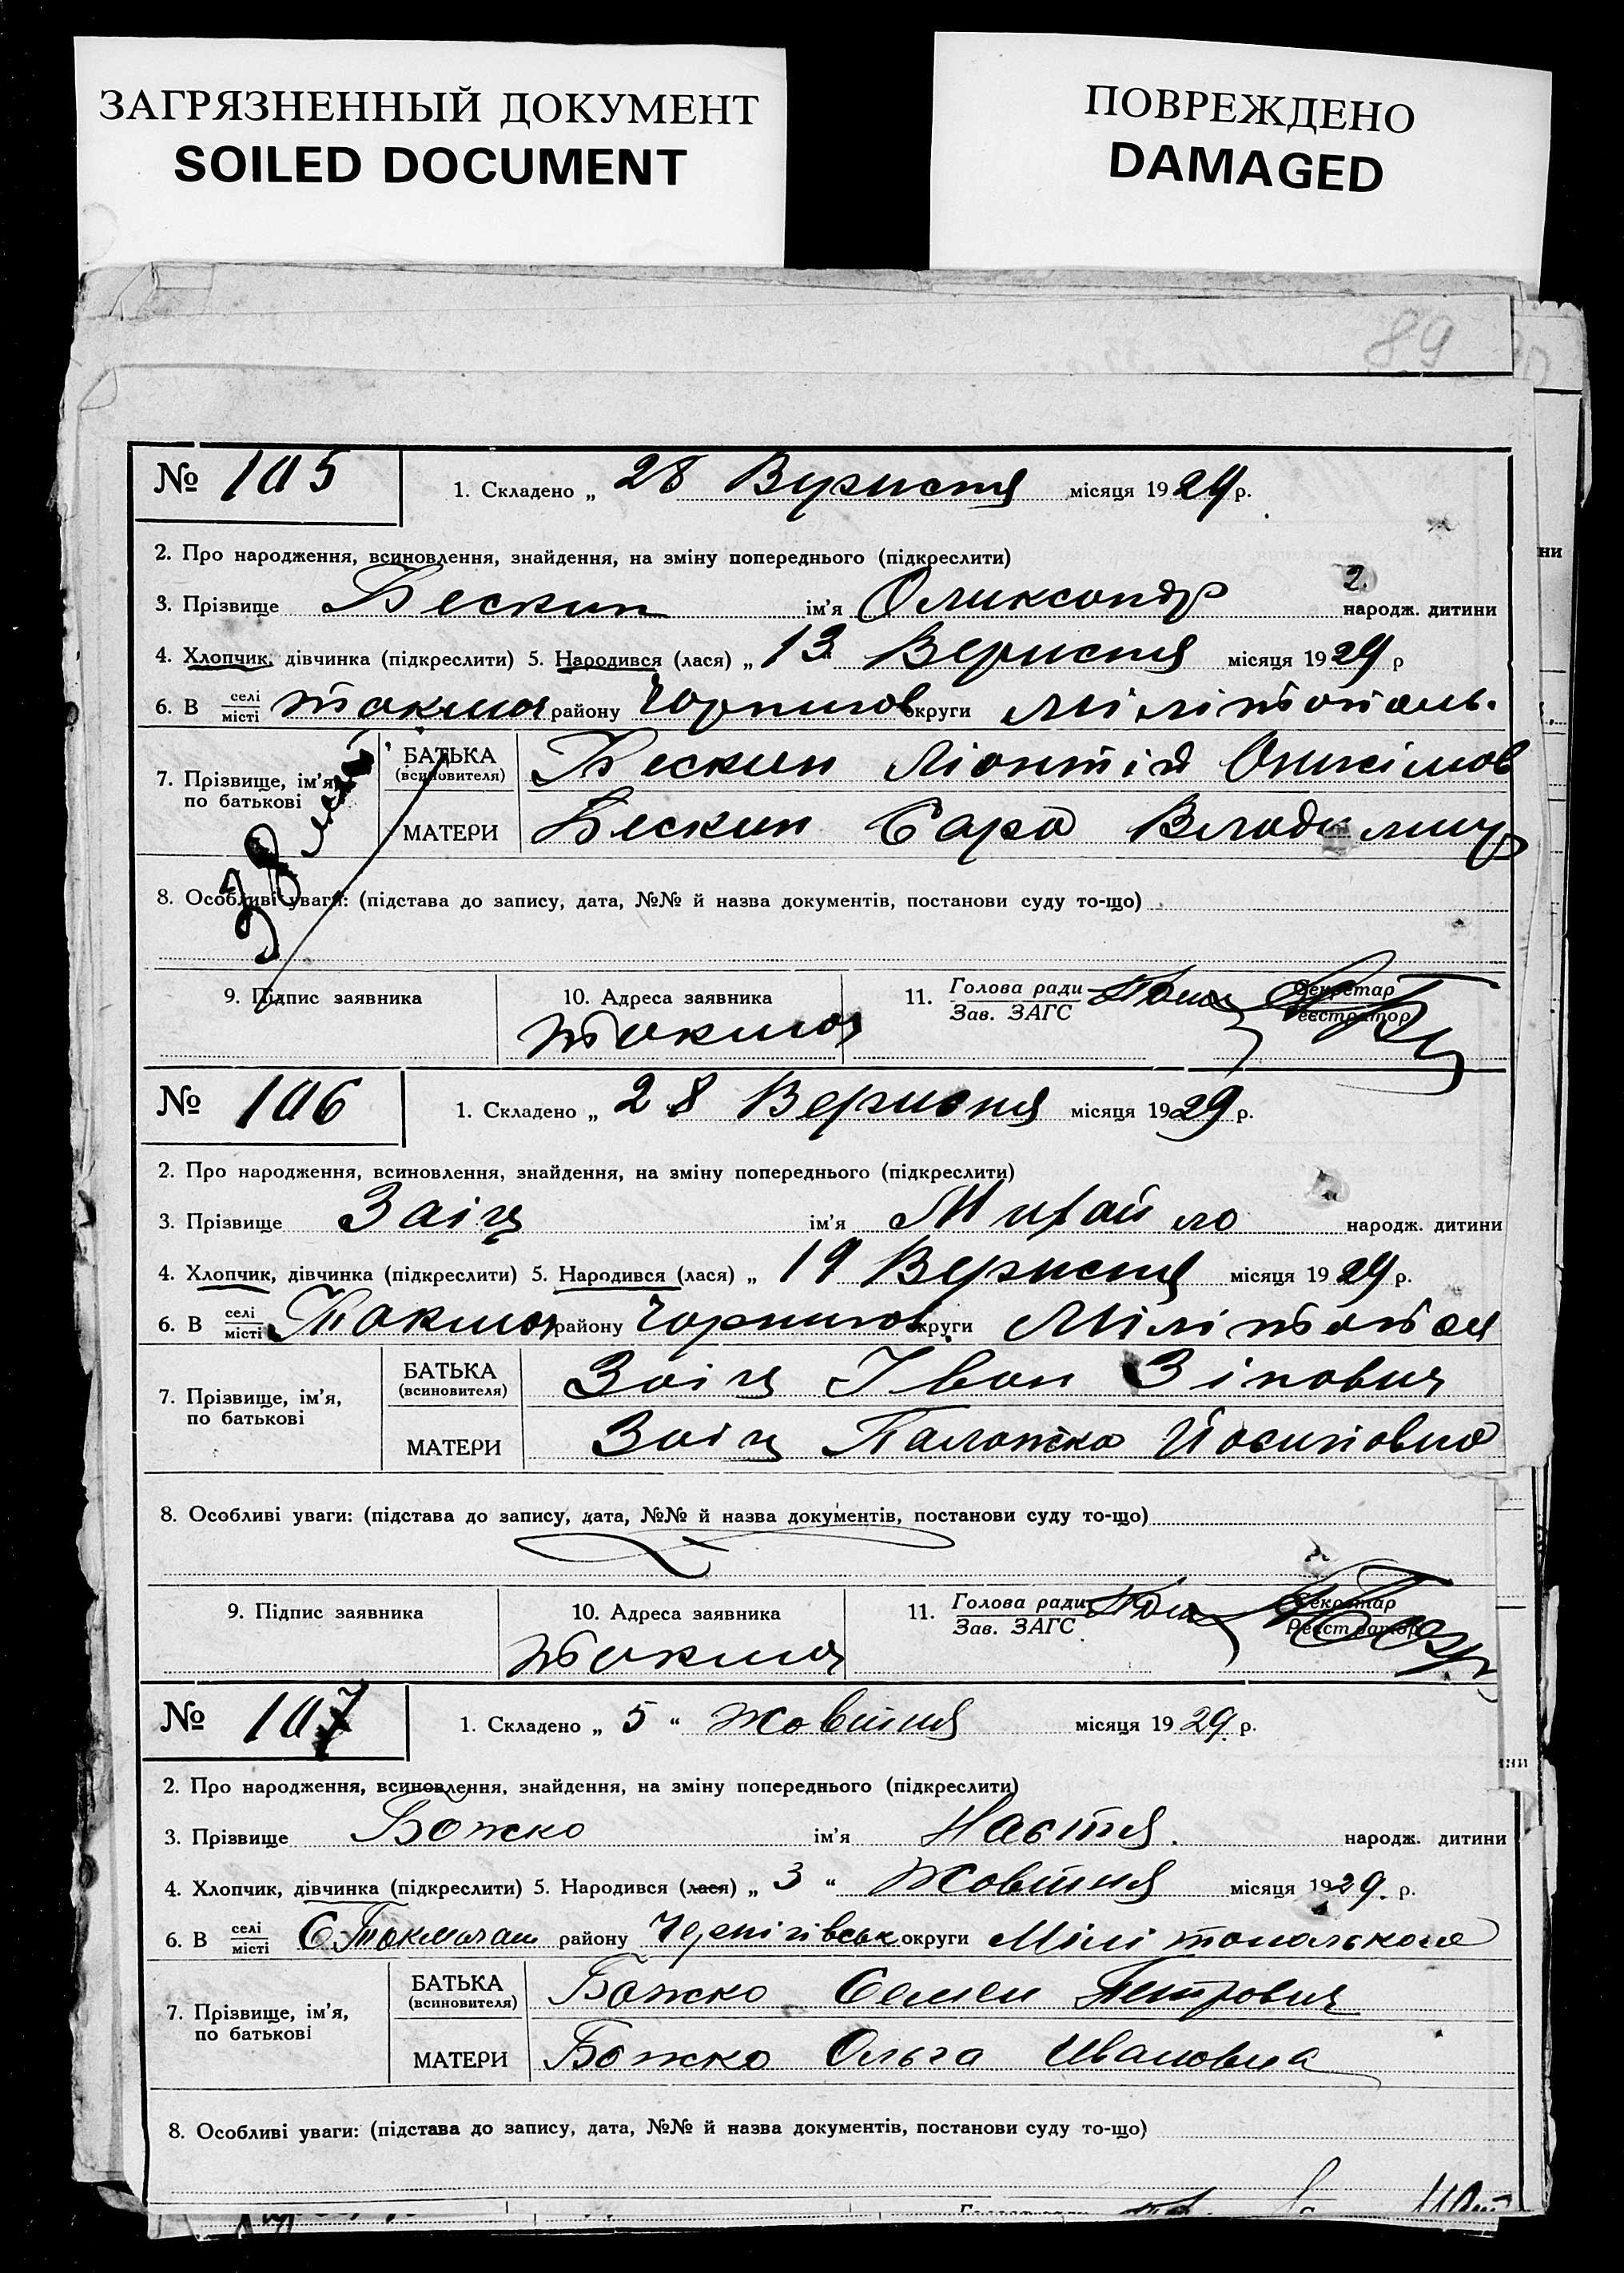 ЗАГРЯЗНЕННЫЙ ДОКУМЕНТ
SOILED DOCUMENT
ПОВРЕЖДЕНО
DAMAGED
89
№ 105 1. Складено „ 28 Вересня місяця 1929 р.
2. Про народження, всиновлення, знайдення, на зміну попереднього (підкреслити)
3. Прізвище Бескин ім'я Оликсандр 2. народж. дитини
4. Хлопчик, дівчинка (підкреслити) 5. Народився (лася) „ 13 Вересня місяця 1929 р
6. В селі місті Токмач району Чорнигов округи Мілітопаль.
7. Прізвище, ім'я, по батькові БАТЬКА (всиновителя) Бескин Ліонтій Онисімов
МАТЕРИ Бескин Сара Владимир
8. Особливі уваги: (підстава до запису, дата, №№ й назва документів, постанови суду то-що)
9. Підпис заявника 10. Адреса заявника 11. Голова ради Зав. ЗАГС Секретар Реєстратор
Токмач
№ 106 1. Складено „ 28 Вересня місяця 1929 р.
2. Про народження, всиновлення, знайдення, на зміну попереднього (підкреслити)
3. Прізвище Заіц ім'я Михайло народж. дитини
4. Хлопчик, дівчинка (підкреслити) 5. Народився (лася) „ 19 Вересня місяця 1929 р.
6. В селі місті Токмач району Чорнигов округи Мілітопал
7. Прізвище, ім'я, по батькові БАТЬКА (всиновителя) Заіц Іван Зінович
МАТЕРИ Заіц Палажка Йосиповна
8. Особливі уваги: (підстава до запису, дата, №№ й назва документів, постанови суду то-що)
9. Підпис заявника 10. Адреса заявника 11. Голова ради Зав. ЗАГС Секретар Реєстратор
Токмач
№ 107 1. Складено „ 5 “ жовтня місяця 1929. р.
2. Про народження, всиновлення, знайдення, на зміну попереднього (підкреслити)
3. Прізвище Божко ім'я Настя. народж. дитини
4. Хлопчик, дівчинка (підкреслити) 5. Народився (лася) „ 3 “ Жовтня місяця 1929. р.
6. В селі місті С. Токмачат району Чернігівськ округи Мілітопалького
7. Прізвище, ім'я, по батькові БАТЬКА (всиновителя) Божко Семен Петрович
МАТЕРИ Божко Ольга Ивановна
8. Особливі уваги: (підстава до запису, дата, №№ й назва документів, постанови суду то-що)